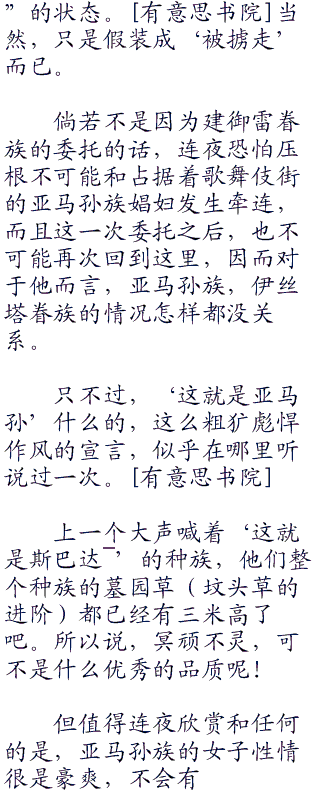 ”的状态。[有意思书院]当
然，只是假装成‘被掳走’
而已。
倘若不是因为建御雷眷
族的委托的话，连夜恐怕压
根不可能和占据着歌舞伎街
的亚马孙族娼妇发生牵连，
而且这一次委托之后，也不
可能再次回到这里，因而对
于他而言，亚马孙族，伊丝
塔眷族的情况怎样都没关
系。
只不过，‘这就是亚马
孙’什么的，这么粗犷彪悍
作风的宣言，似乎在哪里听
说过一次。[有意思书院]
上一个大声喊着‘这就
是斯巴达¯’的种族，他们整
个种族的墓园草（坟头草的
进阶）都已经有三米高了
吧。所以说，冥顽不灵，可
不是什么优秀的品质呢！
但值得连夜欣赏和任何
的是，亚马孙族的女子性情
很是豪爽，不会有